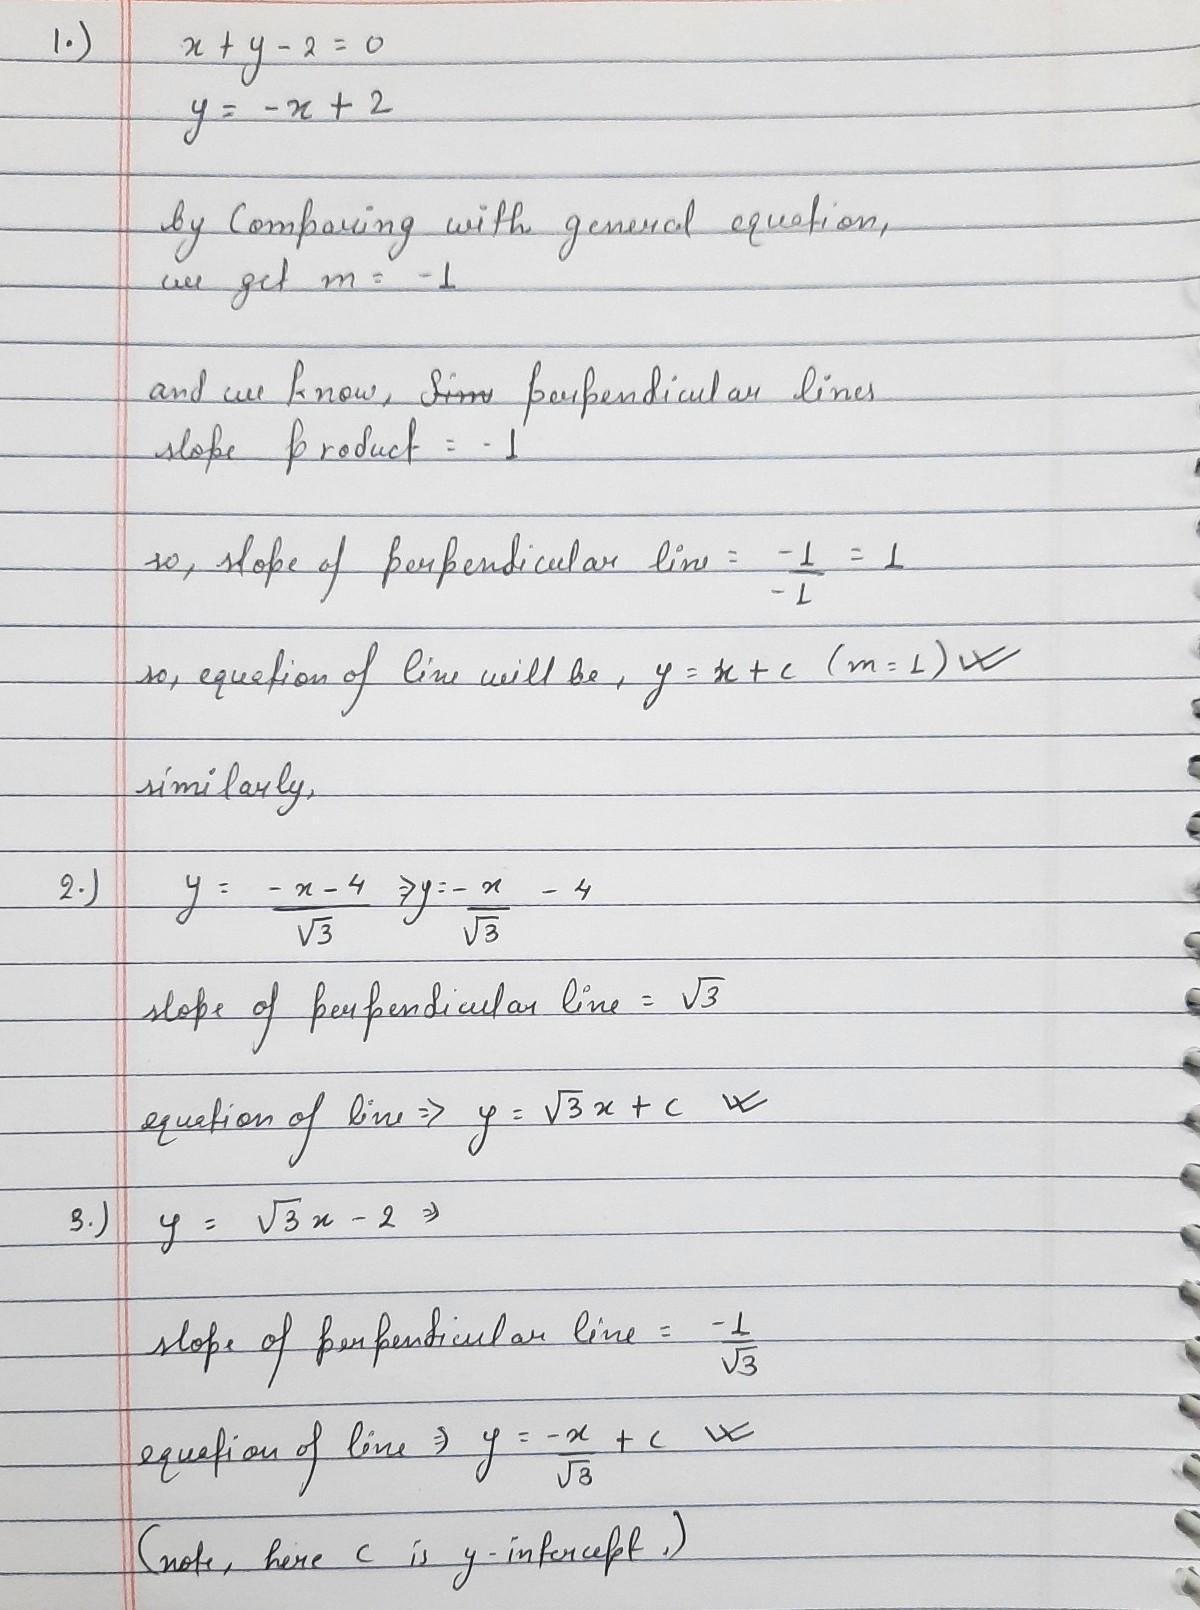 1.) x + y - 2 = 0
y = -x + 2
by Comparing with general equation,
we get m = -1
and we know, perpendicular lines
slope product = -1
so, slope of perpendicular line = -1/-1 = 1
so, equation of line will be, y = x + c (m = 1)
similarly,
2.) y = (-x - 4)/√3 ⇒ y = -x/√3 - 4
slope of perpendicular line = √3
equation of line ⇒ y = √3x + c
3.) y = √3x - 2 ⇒
slope of perpendicular line = -1/√3
equation of line ⇒ y = -x/√3 + c
(note, here c is y-intercept.)